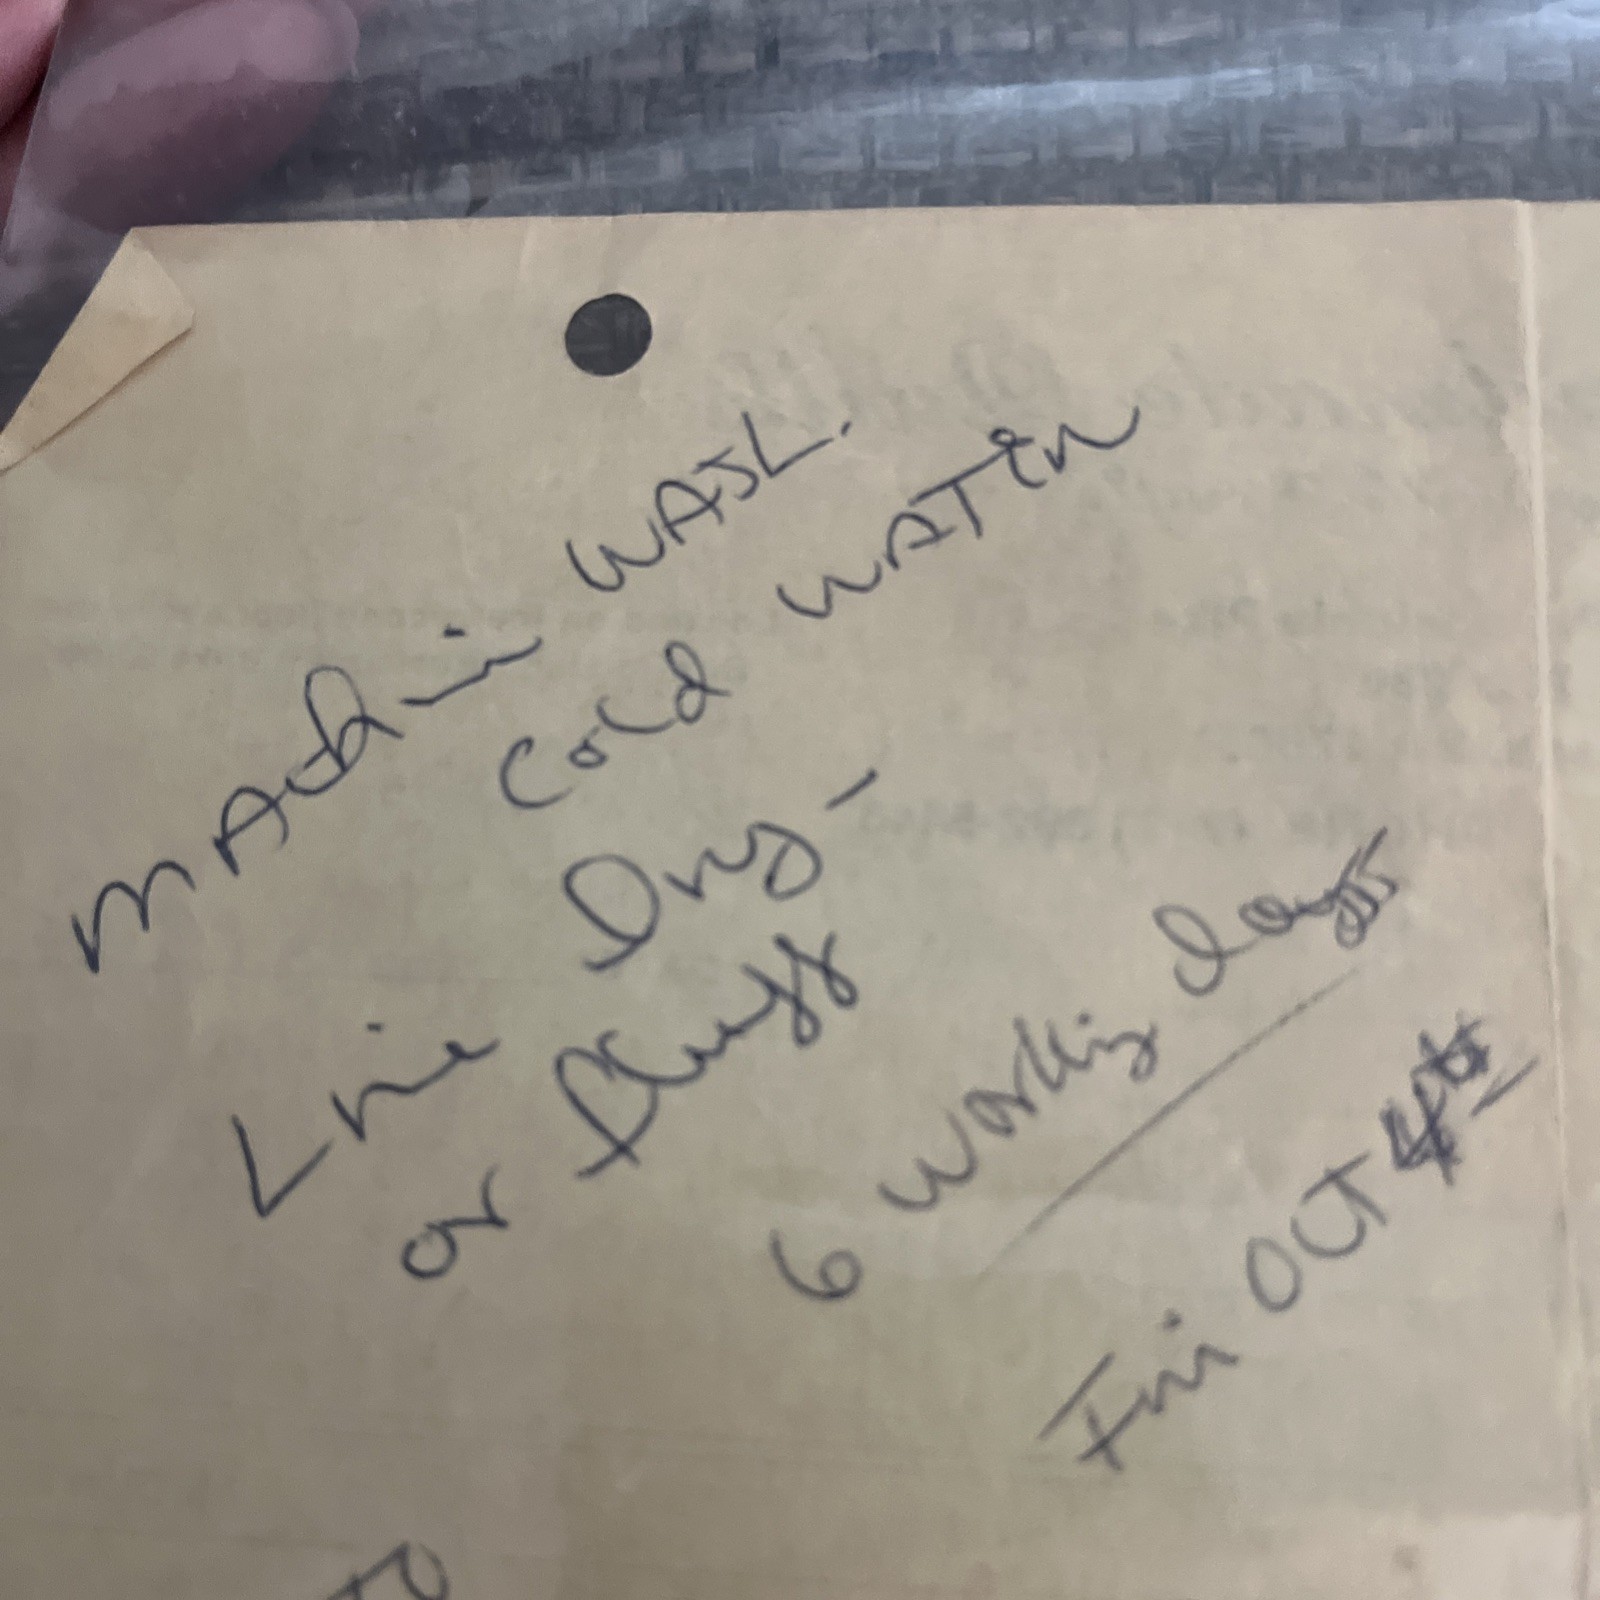 Machin Wash.
Cold Water
Line Dry -
or fluff
6 Working days
Fri OCT 4th
TO